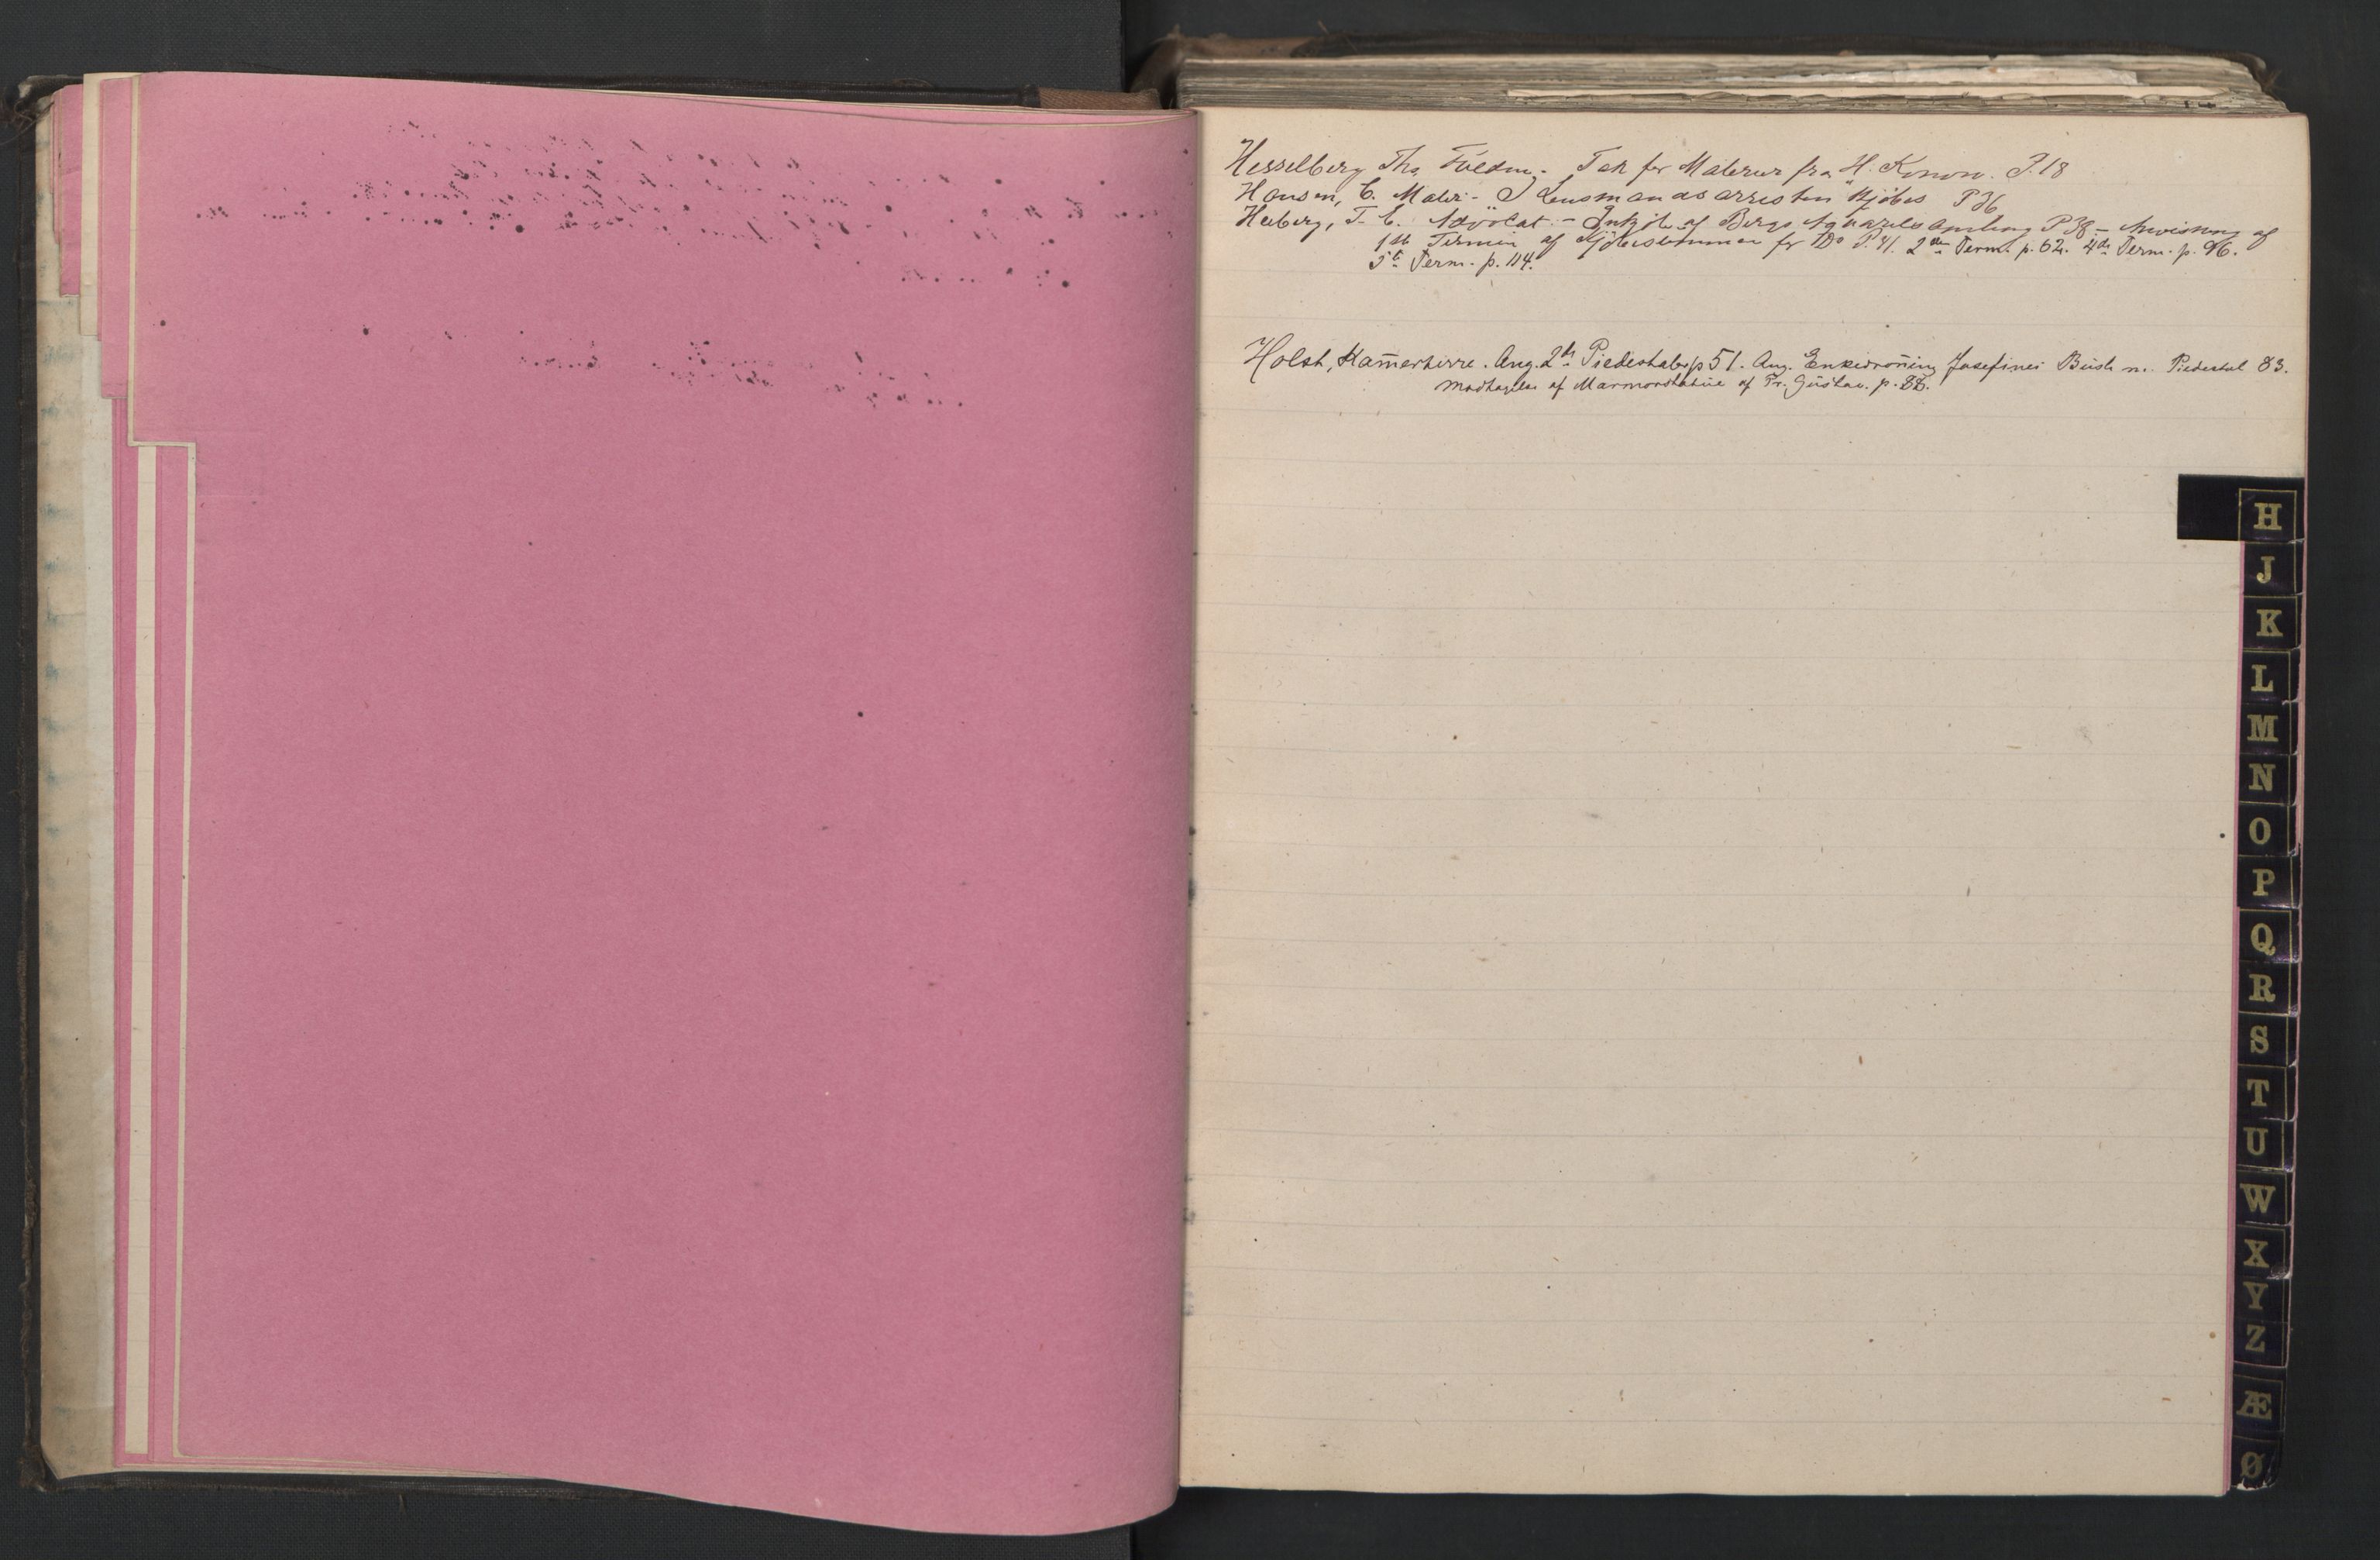 Hesselberg Ths Fuldm. - Tak for Malerier fra H. Konow. P. 18
Hansen, C. Maler - I "Lensmandsarresten" kjöbes P 36
Heiberg, J. C. Advocat. - Indkjöb af Bergs Aquarelsamling P 38 - Anvisning af
1ste Termin af Kjöbesummen for Do P. 41. 2den Term. p. 62. 4de Term. p. 96.
5te Term. p. 114.
Holst, Kam̄erherre. Ang. 2de Piedestaler p 51. Ang. Enkedron̄ing Josefines Büste m. Piedestal 83.
Modtagelse af Marmorstatüe af Pr. Güstav. p. 88.
H
J
K
L
M
N
O
P
Q
R
S
T
U
W
X
Y
Z
Æ
Ø